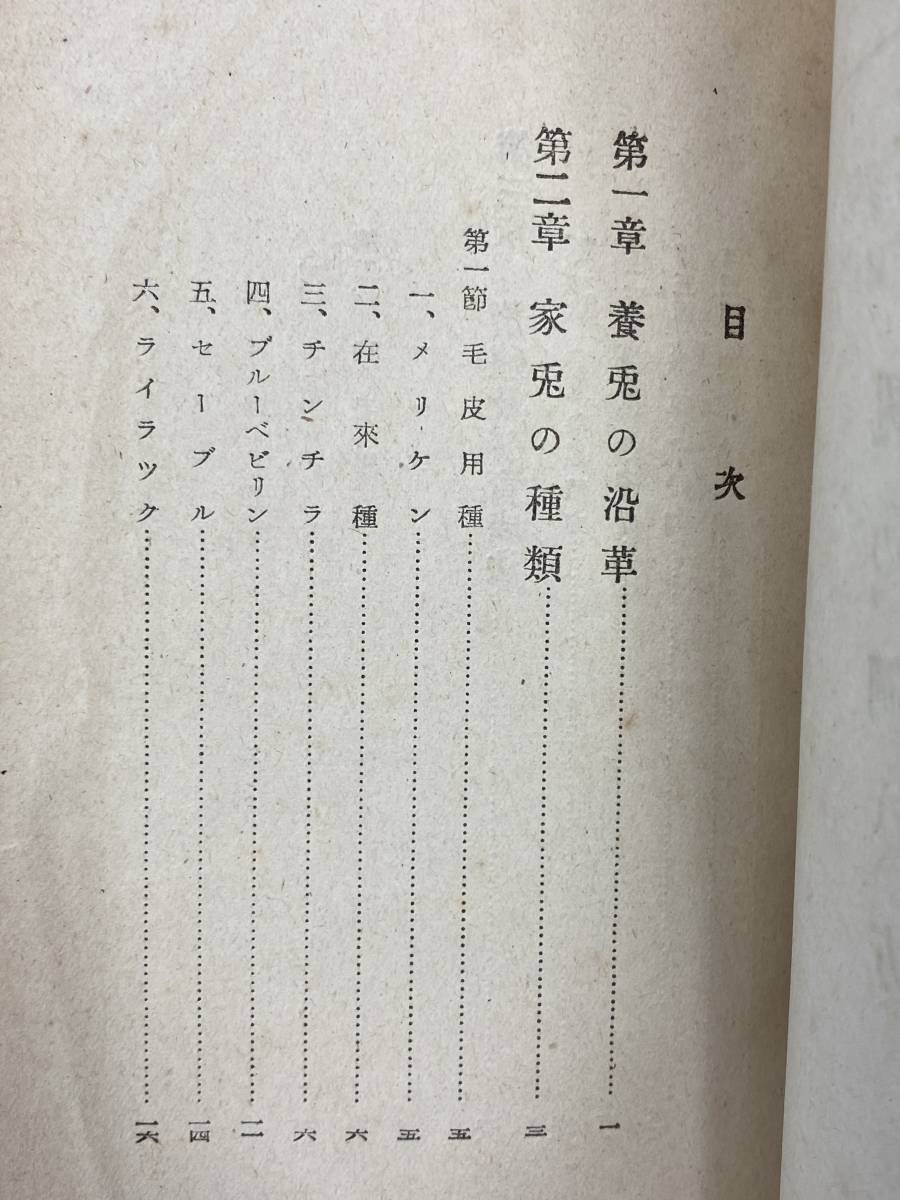 目次
第一章 養兎の沿革……一
第二章 家兎の種類……三
第一節 毛皮用種……五
一、メリケン……五
二、在來種……六
三、チンチラ……六
四、ブルーベビリン……一一
五、セーブル……一四
六、ライラツク……一六